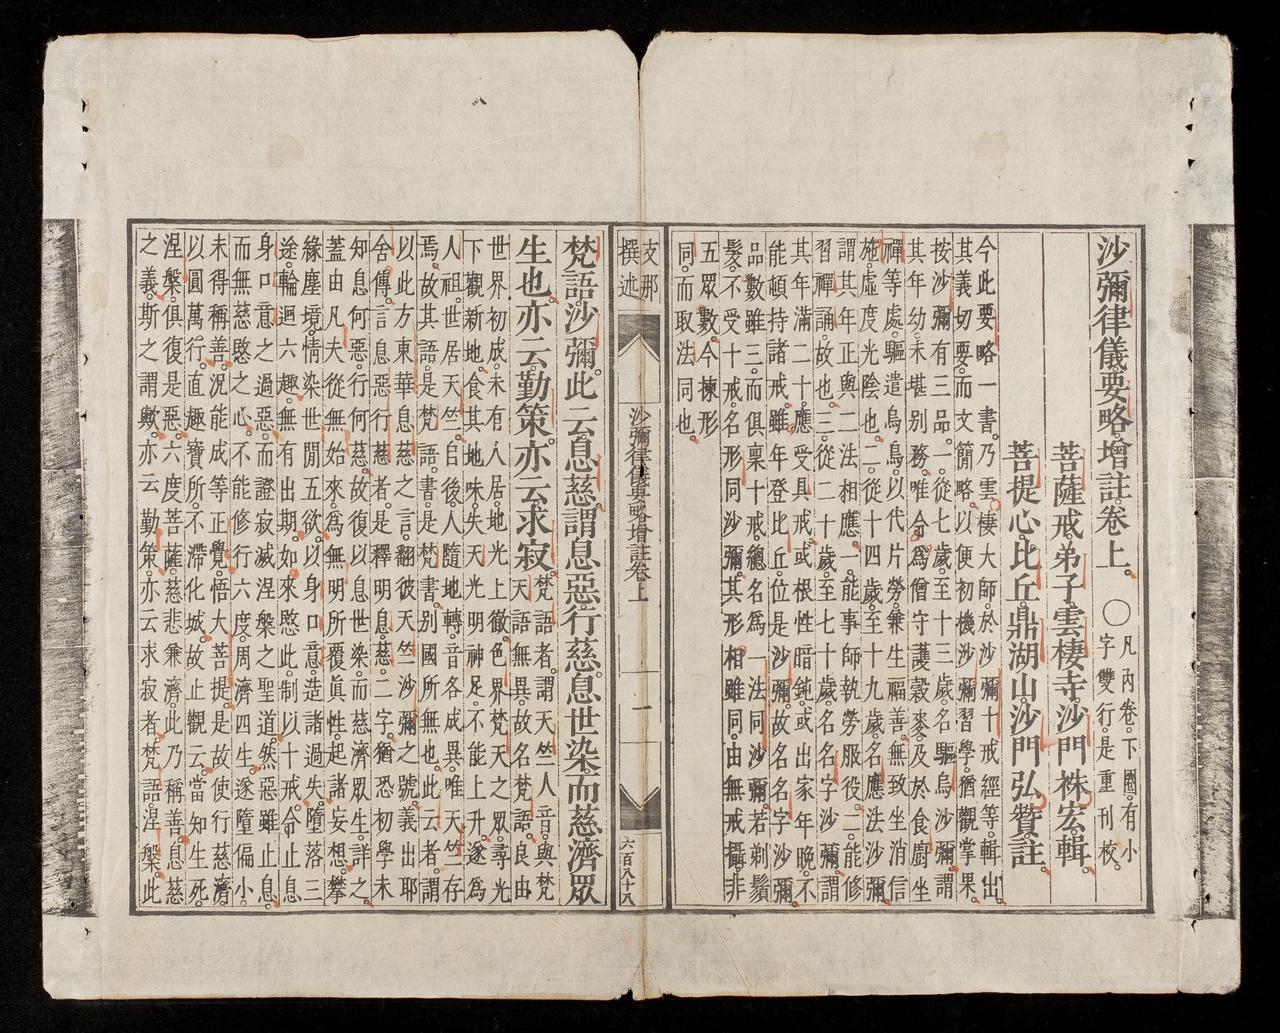 沙彌律儀要略增註卷上。 ○ 凡內卷。下圈。有小
字雙行。是重刊校。
菩薩戒弟子雲棲寺沙門袾宏輯。
菩提心比丘鼎湖山沙門弘贊註。
今此要略一書。乃雲棲大師。於沙彌十戒經等。輯出
其義切要。而文簡略。以便初機沙彌習學。猶觀掌果。
按沙彌有三品。一從七歲至十三歲。名驅烏沙彌。謂
其年幼未堪別務。唯令爲僧守護穀麥。及於食廚坐
禪等處。驅遣烏鳥。以代片勞。兼生福善。無致坐消信
施。虛度光陰也。二從十四歲至十九歲。名應法沙彌。
謂其年正與二法相應。一能事師執勞服役。二能修
習禪誦。故也。三從二十歲。至七十歲。名名字沙彌。謂
其年滿二十。應受具戒。或根性暗鈍。或出家年晚。不
能頓持諸戒。雖年登比丘位。是沙彌。故名名字沙彌。
品數雖三。而俱稟十戒。總名爲一法同沙彌。若剃鬚
髮。不受十戒。名形同沙彌。其形相雖同。由無戒攝。非
五眾數。今揀形
同。而取法同也。
支那
撰述
沙彌律儀要略增註卷上
一
六百八十八
梵語沙彌。此云息慈。謂息惡行慈。息世染而慈濟眾
生也。亦云勤策。亦云求寂。
梵語者。謂天竺人音。與梵
天語無異。故名梵語。良由
世界初成。未有人居。地光上徹。色界梵天之眾。尋光
下觀新地。食其地味。失天光明神足。不能上升。遂爲
人祖。世居天竺。后後人隨地轉。音各成異。唯天竺存
焉。故其語。是梵語。書是梵書。別國所無也。此云者。謂
以此方東華息慈之言。翻彼天竺沙彌之號。義出耶
舍傳。言息惡行慈者。是釋明息慈二字。猶恐初學未
知息何惡。行何慈。故復以息世染。而慈濟眾生。詳之。
蓋由凡夫從無始來。爲無明所覆眞性。起諸妄想。攀
緣塵境。情染世閒五欲。以身口意。造諸過失。墮落三
途。輪迴六趣。無有出期。如來愍此。制以十戒。令止息
身口意之過惡。而證寂滅涅槃之聖道。然惡雖止息。
而無慈愍之心。不能修行六度。周濟四生。遂墮偏小。
未得稱善。況能成等正覺。悟大菩提。是故使行慈濟。
以圓萬行。直趣寶所。不滯化城。故止觀云。當知生死
涅槃。俱復是惡。六度菩薩。慈悲兼濟。此乃稱善。息慈
之義。斯之謂歟。亦云勤策。亦云求寂者。梵語涅槃。此